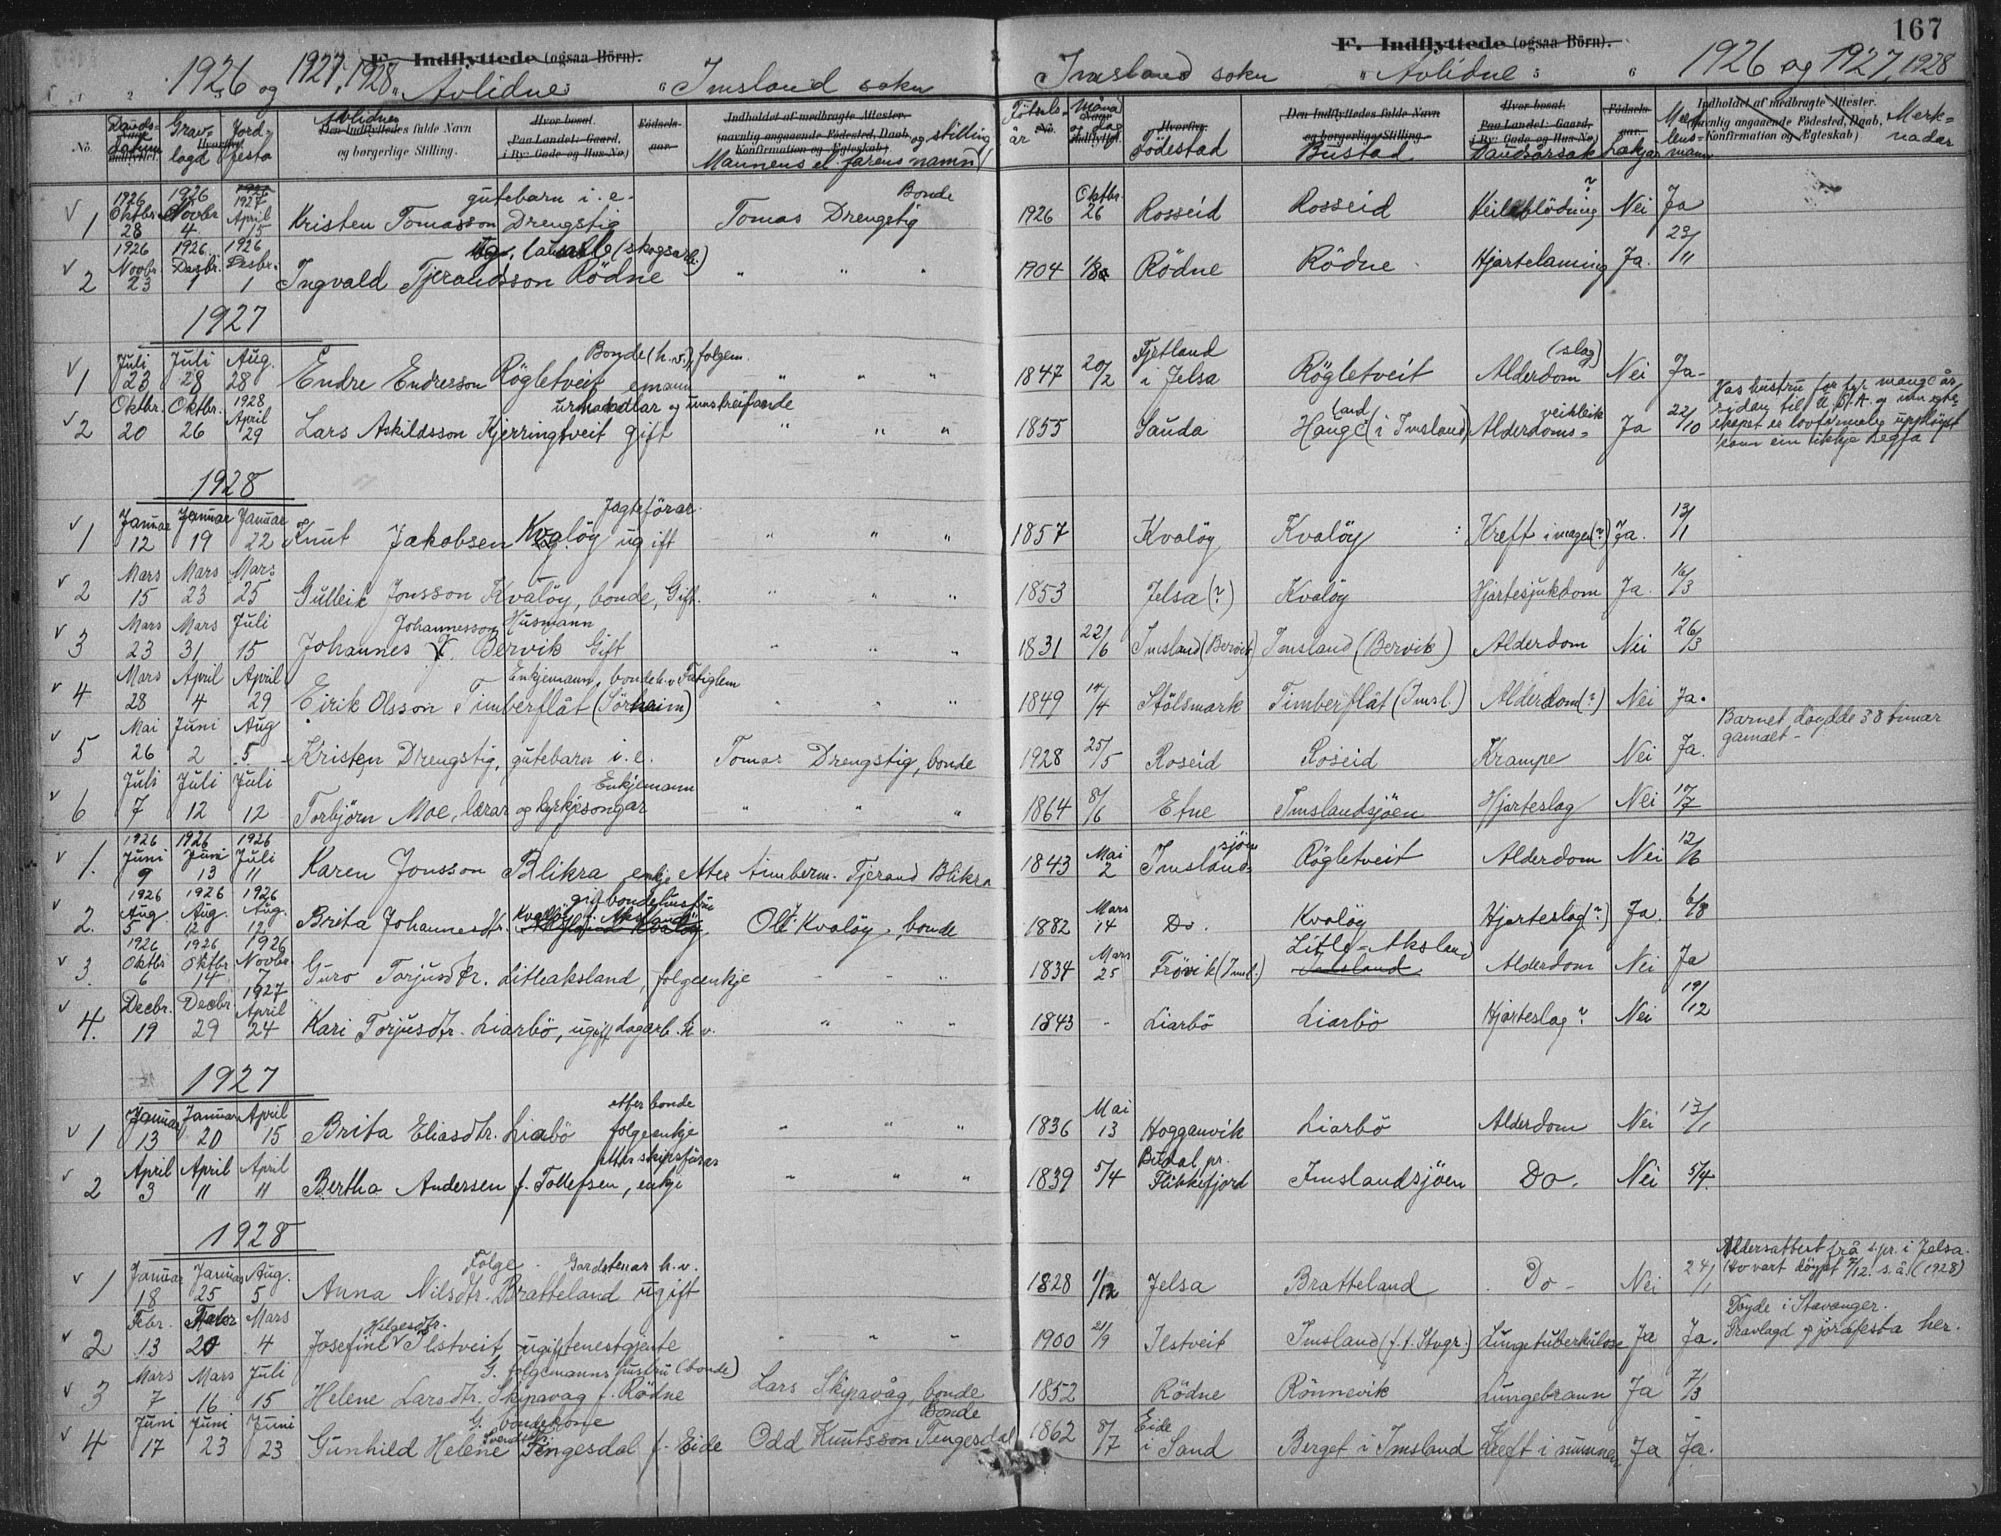 167
F. Indflyttede (ogsaa Börn).
1926 og 1927, 1928 Avlidne Imsland sokn
F. Indflyttede (ogsaa Börn).
Imsland sokn Avlidne 1926 og 1927, 1928
No. Dauds-datum Grav-lagd Jord-festa
Avlidnes fulde Navn og borgerlige Stilling.
Hvor bosat. Paa Landet: Gaard, i By: Gade og Hus-No)
Födsels-aar.
Indholdet af medbragte Attester. (navnlig angaaende Födested, Daab, Konfirmation og Ægteskab)
Mannens el. farens namn og stilling
Födsels-år Måna og dag Födestad
Den Indflyttedes fulde Navn og borgerlige Stilling. Bustad
Hvor bosat. Paa Landet: Gaard, i By: Gade og Hus-No) Daudsårsak
Födsels-aar. Lækjar
Indholdet af medbragte Attester. (navnlig angaaende Födested, Daab, Konfirmation og Ægteskab) Merk=nadar
1 1926 Oktbr. 28 1926 Novbr 4. 1927 April 15 Kristen Tomasson Drengstig gutebarn i. e. Tomas Drengstig Bonde 1926 Oktbr. 26 Rosseid Rosseid blödning ? Nei Ja
2 1926 Novbr. 23 1926. Desbr. 1 1926 Desbr. 1 Ingvald Tjerandsson Rödne ug. (skogsarb.) " " " 1904 Rödne Rödne Hjartelaming Ja. 23/11
1927
1 Juli 23 Juli 28 Aug. 28 Endre Endresson Rögletveit Bonde (h. v.), folgem. emann " " " 1847 20/2 Tjetland i Jelsa Rögletveit Alderdom (slag) Nei Ja-
2 Oktbr. 20 Oktbr. 26 1928 April 29 Lars Askildsson Kjerringtveit gift urmakar og umstreifande " " " 1855 Sauda Hauge (i Imsland) Alderdoms=veikleik Ja 22/10 Has hustru for fyr mange år sidan til U.S.A. og
1928
1 Januar 12 Januar 19 Januar 22 Knut Jakobsen Kvalöy ugift Jagteförar. " " " 1857 Kvalöy Kvalöy Kreft i magen (?) Ja. 13/1
2 Mars 15 Mars 23 Mars 25 Gulleik Jonsson Kvalöy, bonde, Gift. " " " 1853 Jelsa (?) Kvalöy Hjartesjukdom Ja. 16/3
3 Mars 23 Mars 31 Juli 15 Johannes Johannesson Bervik Husmann Gift " " " 1831 22/6 Imsland (Bervik) Imsland (Bervik) Alderdom Nei 26/3
4 Mars 28 April 4 April 29 Eirik Olsson Timberflåt (Sörheim) Enkjemann, bonde h. v. Fatiglem " " " 1849 14/4 Stölsmark Timberflåt (Imsl.) Alderdom (?) Nei Ja.
5 Mai 26 Juni 2 Aug 5. Kristen Drengstig, gutebarn i. e. Tomas Drengstig, bonde 1928 25/5 Roseid Roseid Krampe Nei Ja. Barnet döydde 38 timar gamalt-
6 Juli 7 Juli 12 Juli 12 Torbjörn Moe, lærar og kyrkjesongar Enkjemann " " " 1864 8/6 Etne Imslandsjöen Hjarteslag Nei 17/7
1. 1926 Juni 9 1926 Juni 13 1926 Juli 11 Karen Jonsson Blikra enkje etter timberm. Tjerand Blikra 1843 Mai 2 Imsland=sjön Rögletveit Alderdom Nei 12/6
2. 1926 Aug. 5 1926 Aug. 12 1926 Aug. 12 Brita Johannesdtr. Kvalöy f. Aksland gift bondehustru Ole Kvalöy, bonde 1882 Mars 14 Do. Kvalöy Hjarteslag (?) Ja. 6/8
3. 1926 Oktbr 6 1926 Oktbr. 14 1926 Novbr. 7 Guro Torjusdtr. Litleaksland, folgeenkje " " " 1834 Mars 25 Frövik (Imsl.) Litle-Aksland Alderdom Nei Ja
4. Decbr. 19 Decbr. 29 1927 April 24 Kari Torjusdtr. Liarbö, ugift dagarb. h. v. " " " 1843 - Liarbö Liarbö Hjarteslag ? Nei 19/12
1927
1 Januar 13 Januar 20 April 15 Brita Eliasdtr. Liabö folgeenkje etter bonde " " " 1836 Mai 13 Hogganvik Liarbö Alderdom Nei 13/1
2 April 3 April 11 April 11 Bertha Andersen f. Tollefsen, enkje etter skipsförar " " " 1839 5/4 pr. Flekkefjord Imslandsjöen Do. Nei 5/4.
1928
1 Januar 18 Januar 25 Aug. 5 Anna Nilsdtr. Bratteland ugift Folge. h. v. 1828 1/12 Jelsa Bratteland Do- Nei 24/1 Aldersattest frå s.pr. i Jelsa. Ho vart döypt 7/12. s. å. (1928)
2 Febr. 13 Febr 20 Mars 4 Josefine Helgesdtr. Ilstveit, ugift tenestgjente " " " 1900 21/9 Ilstveit Imsland (f. t. Stvgr.) Lungetuberkulose Ja Ja. Döyde i Stavanger. Gravlagd og jordfesta her.
3 Mars 7 Mars 16 Juli 15 Helene Larsdtr. Skipavåg f. Rödne G. folgemanns hustru (bonde) Lars Skipavåg, bonde 1852 Rödne Rönnevik Lungebrann Ja 7/3
4 Juni 17 Juni 23 Juni 23 Gunhild Helene Tengesdal f. Eide G. bondekone Odd Knutsson Tengesdal Bonde 1862 8/7 Eide i Sand Berget i Imsland Kreft i Ja Ja.